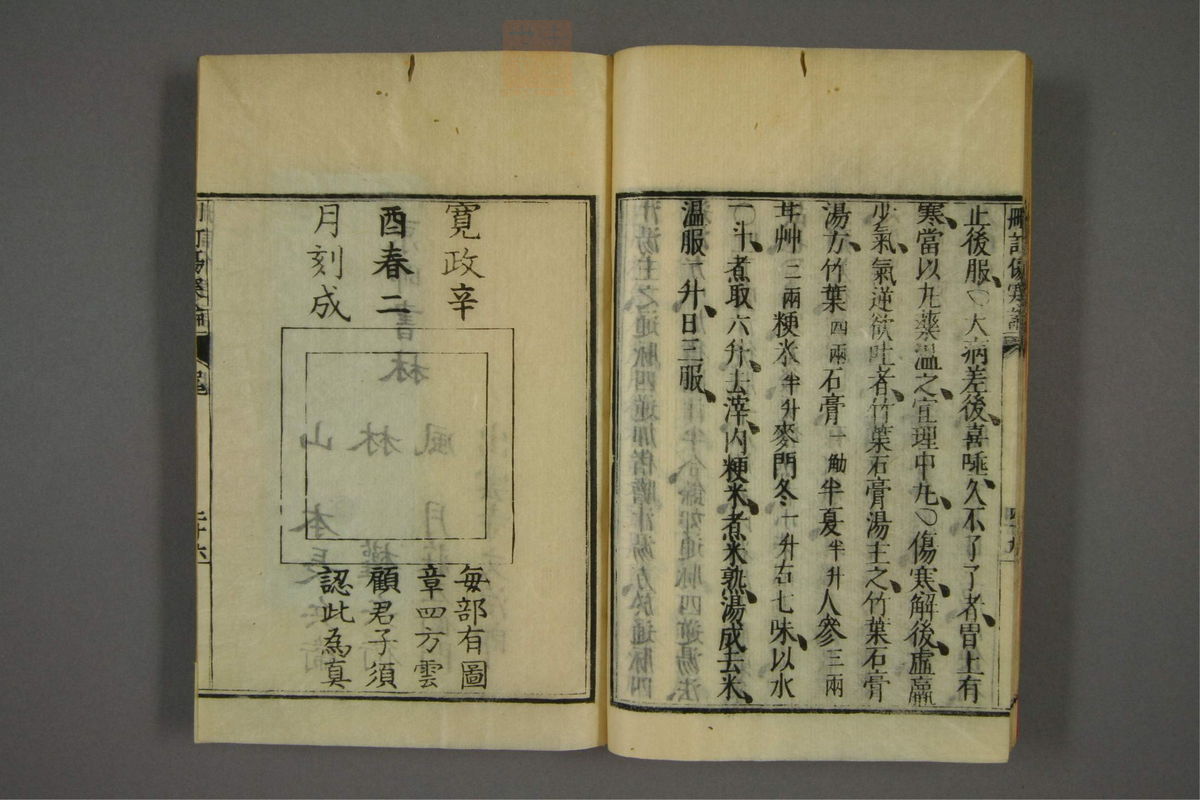 止後服〇大病差後喜唾久不了了者胃上有
寒當以丸藥溫之宜理中丸〇傷寒解後虛羸
少氣氣逆欲吐者竹葉石膏湯主之竹葉石膏
湯方竹葉四兩石膏一觔半夏半升人參三兩
甘艸三兩粳米半升麥門冬一升右七味以水
一斗煮取六升去滓內粳米煮米熟湯成去米
温服一升日三服
寛政辛
酉春二
月刻成
每部有圖
章四方雲
顧君子須
認此為真